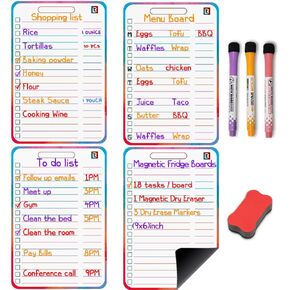 Shopping list
Rice 1 OUNCE
Tortillas 10 PCS
Baking powder
Honey
Flour
Steak Sauce 1 POUCH
Cooking Wine
Menu Board
M Eggs Tofu BBQ
T Waffles Wrap
W Oats chicken
T Meat Turkey
F Juice Taco
S Butter BBQ
S Waffles Wrap
To do list
Follow up emails 1PM
Meet up 3PM
Gym 4PM
Clean the bed 5PM
Clean the room
Pay Bills 8PM
Conference call 9PM
Magnetic Fridge Boards
18 tasks / board
1 Magnetic Dry Eraser
3 Dry Erase Markers
(9x6)inch